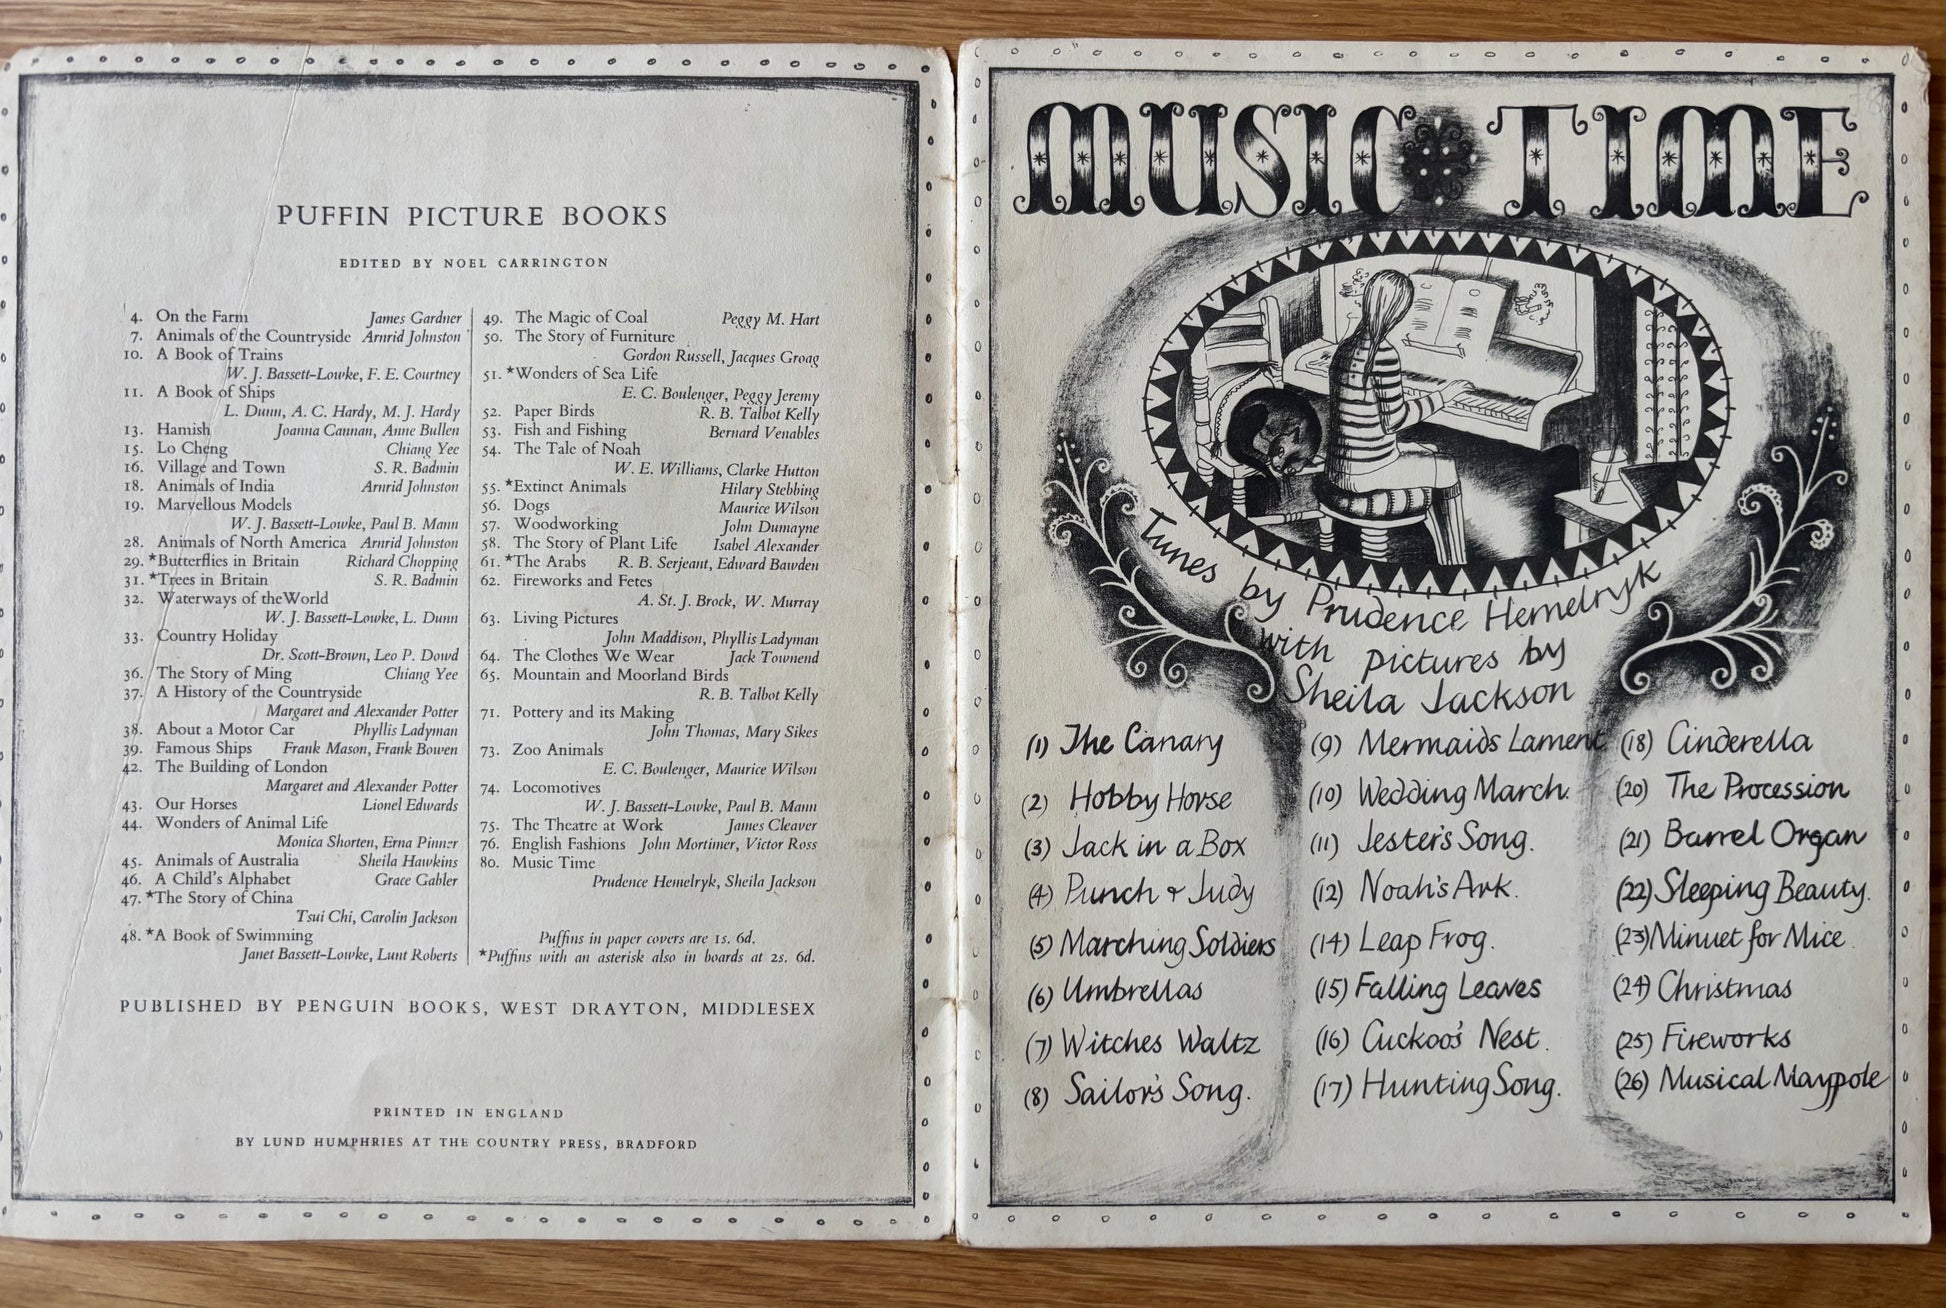 PUFFIN PICTURE BOOKS
EDITED BY NOEL CARRINGTON
4. On the Farm James Gardner
7. Animals of the Countryside Arnrid Johnston
10. A Book of Trains
W. J. Bassett-Lowke, F. E. Courtney
11. A Book of Ships
L. Dunn, A. C. Hardy, M. J. Hardy
13. Hamish Joanna Cannan, Anne Bullen
15. Lo Cheng Chiang Yee
16. Village and Town S. R. Badmin
18. Animals of India Arnrid Johnston
19. Marvellous Models
W. J. Bassett-Lowke, Paul B. Mann
28. Animals of North America Arnrid Johnston
29. *Butterflies in Britain Richard Chopping
31. *Trees in Britain S. R. Badmin
32. Waterways of the World
W. J. Bassett-Lowke, L. Dunn
33. Country Holiday
Dr. Scott-Brown, Leo P. Dowd
36. The Story of Ming Chiang Yee
37. A History of the Countryside
Margaret and Alexander Potter
38. About a Motor Car Phyllis Ladyman
39. Famous Ships Frank Mason, Frank Bowen
42. The Building of London
Margaret and Alexander Potter
43. Our Horses Lionel Edwards
44. Wonders of Animal Life
Monica Shorten, Erna Pinner
45. Animals of Australia Sheila Hawkins
46. A Child's Alphabet Grace Gabler
47. *The Story of China
Tsui Chi, Carolin Jackson
48. *A Book of Swimming
Janet Bassett-Lowke, Lunt Roberts
49. The Magic of Coal Peggy M. Hart
50. The Story of Furniture
Gordon Russell, Jacques Groag
51. *Wonders of Sea Life
E. C. Boulenger, Peggy Jeremy
52. Paper Birds R. B. Talbot Kelly
53. Fish and Fishing Bernard Venables
54. The Tale of Noah
W. E. Williams, Clarke Hutton
55. *Extinct Animals Hilary Stebbing
56. Dogs Maurice Wilson
57. Woodworking John Dumayne
58. The Story of Plant Life Isabel Alexander
61. *The Arabs R. B. Serjeant, Edward Bawden
62. Fireworks and Fetes
A. St. J. Brock, W. Murray
63. Living Pictures
John Maddison, Phyllis Ladyman
64. The Clothes We Wear Jack Townend
65. Mountain and Moorland Birds
R. B. Talbot Kelly
71. Pottery and its Making
John Thomas, Mary Sikes
73. Zoo Animals
E. C. Boulenger, Maurice Wilson
74. Locomotives
W. J. Bassett-Lowke, Paul B. Mann
75. The Theatre at Work James Cleaver
76. English Fashions John Mortimer, Victor Ross
80. Music Time
Prudence Hemelryk, Sheila Jackson
Puffins in paper covers are 1s. 6d.
*Puffins with an asterisk also in boards at 2s. 6d.
PUBLISHED BY PENGUIN BOOKS, WEST DRAYTON, MIDDLESEX
PRINTED IN ENGLAND
BY LUND HUMPHRIES AT THE COUNTRY PRESS, BRADFORD
MUSIC TIME
Tunes by Prudence Hemelryk
with pictures by
Sheila Jackson
(1) The Canary
(2) Hobby Horse
(3) Jack in a Box
(4) Punch & Judy
(5) Marching Soldiers
(6) Umbrellas
(7) Witches Waltz
(8) Sailor's Song.
(9) Mermaids Lament
(10) Wedding March.
(11) Jester's Song.
(12) Noah's Ark.
(14) Leap Frog.
(15) Falling Leaves
(16) Cuckoo's Nest.
(17) Hunting Song.
(18) Cinderella
(20) The Procession
(21) Barrel Organ
(22) Sleeping Beauty.
(23) Minuet for Mice.
(24) Christmas
(25) Fireworks
(26) Musical Maypole